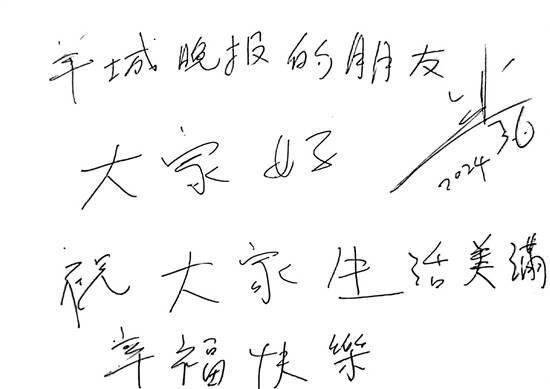 羊城晚报的朋友
大家好
2024 3.6
祝大家生活美滿
幸福快樂